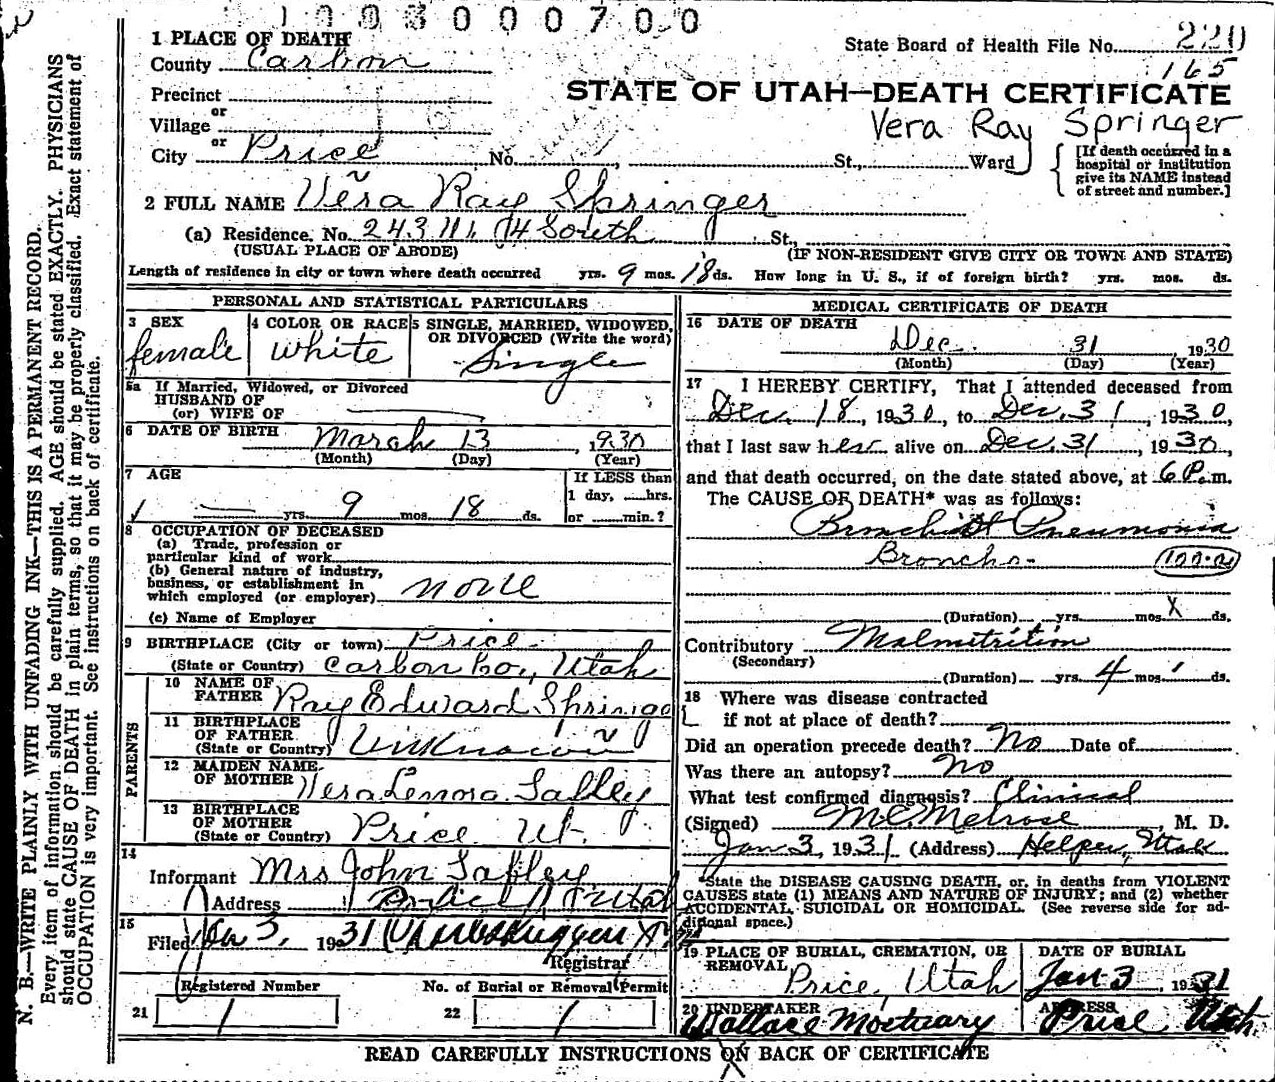 1003000700
1 PLACE OF DEATH
County Carbon
State Board of Health File No. 220
165
Precinct
or
Village
or
City Price No. St., Ward
STATE OF UTAH—DEATH CERTIFICATE
Vera Ray Springer
[If death occurred in a
hospital or institution
give its NAME instead
of street and number.]
2 FULL NAME Vera Ray Springer
(a) Residence. No. 243 W. 4 South St.,
(USUAL PLACE OF ABODE) (IF NON-RESIDENT GIVE CITY OR TOWN AND STATE)
Length of residence in city or town where death occurred yrs. 9 mos. 18 ds. How long in U. S., if of foreign birth? yrs. mos. ds.
PERSONAL AND STATISTICAL PARTICULARS
3 SEX
female
4 COLOR OR RACE
White
5 SINGLE, MARRIED, WIDOWED,
OR DIVORCED (Write the word)
Single
5a If Married, Widowed, or Divorced
HUSBAND OF
(or) WIFE OF
6 DATE OF BIRTH March 13, 1930
(Month) (Day) (Year)
7 AGE
yrs. 9 mos. 18 ds.
If LESS than
1 day, hrs.
or min.?
8 OCCUPATION OF DECEASED
(a) Trade, profession or
particular kind of work
(b) General nature of industry,
business, or establishment in
which employed (or employer) none
(c) Name of Employer
9 BIRTHPLACE (City or town) Price
(State or Country) Carbon Co., Utah
PARENTS
10 NAME OF
FATHER Ray Edward Springer
11 BIRTHPLACE
OF FATHER
(State or Country) Unknown
12 MAIDEN NAME
OF MOTHER Vera Lenora
13 BIRTHPLACE
OF MOTHER
(State or Country) Price Ut.
14
Informant Mrs John
Address Utah
15
Filed Jan 3, 1931
Registrar
Registered Number
21 1
No. of Burial or Removal Permit
22 1
MEDICAL CERTIFICATE OF DEATH
16 DATE OF DEATH
Dec. 31 1930
(Month) (Day) (Year)
17 I HEREBY CERTIFY, That I attended deceased from
Dec. 18, 1930, to Dec. 31, 1930,
that I last saw her alive on Dec. 31, 1930,
and that death occurred, on the date stated above, at 6 P. m.
The CAUSE OF DEATH* was as follows:
Pneumonia
Broncho-
(Duration) yrs. mos. X ds.
Contributory Malnutrition
(Secondary)
(Duration) yrs. 4 mos. ds.
18 Where was disease contracted
if not at place of death?
Did an operation precede death? No Date of
Was there an autopsy? No
What test confirmed diagnosis? Clinical
(Signed) M.C. Melrose, M. D.
Jan 3, 1931 (Address) Helper, Utah
*State the DISEASE CAUSING DEATH, or, in deaths from VIOLENT
CAUSES state (1) MEANS AND NATURE OF INJURY; and (2) whether
ACCIDENTAL, SUICIDAL OR HOMICIDAL. (See reverse side for ad-
ditional space.)
19 PLACE OF BURIAL, CREMATION, OR
REMOVAL Price, Utah
DATE OF BURIAL
Jan 3, 1931
20 UNDERTAKER
Wallace Mortuary
ADDRESS
Price Utah
READ CAREFULLY INSTRUCTIONS ON BACK OF CERTIFICATE
N. B.—WRITE PLAINLY WITH UNFADING INK—THIS IS A PERMANENT RECORD.
Every item of information should be carefully supplied. AGE should be stated EXACTLY. PHYSICIANS
should state CAUSE OF DEATH in plain terms, so that it may be properly classified. Exact statement of
OCCUPATION is very important. See instructions on back of certificate.